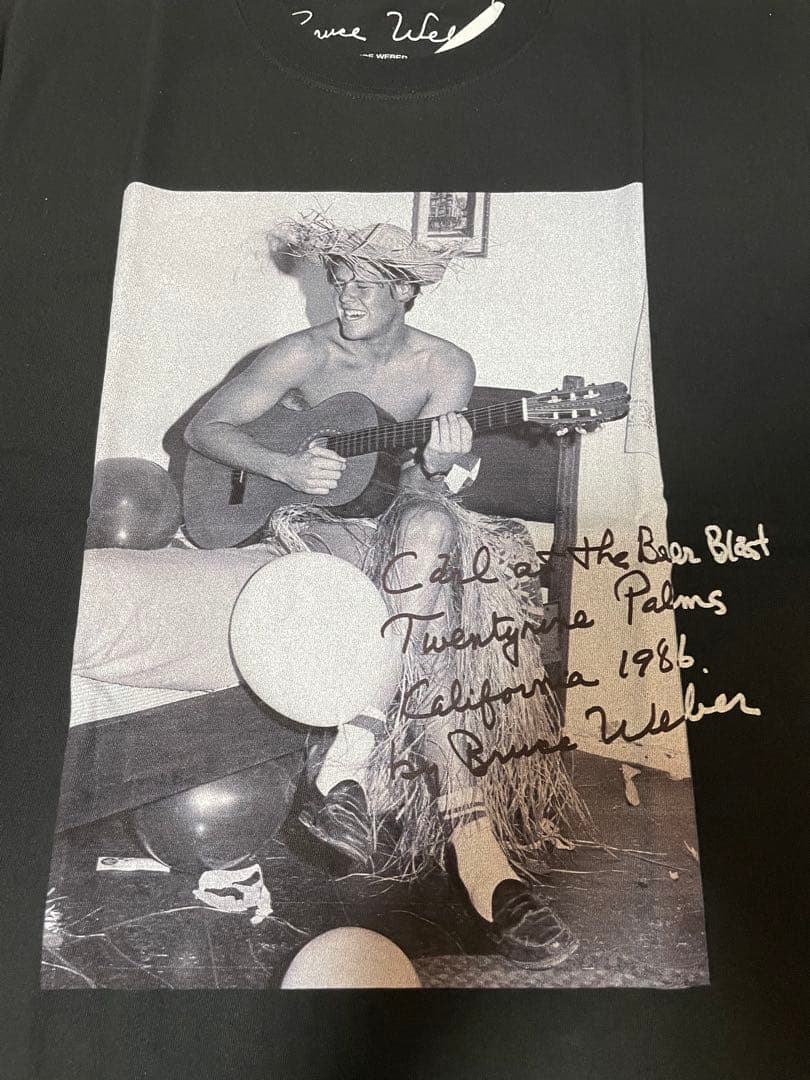 Bruce Web
CE WEBER
Carl at the Beer Blast
Twentynine Palms
California 1986.
by Bruce Weber